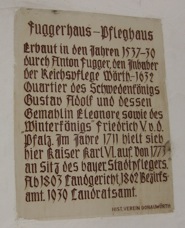 Fuggerhaus – Pfleghaus
Erbaut in den Jahren 1537-30
durch Anton Fugger, den Inhaber
der Reichspflege Wörth. 1632
Quartier des Schwedenkönigs
Gustav Adolf und dessen
Gemahlin Eleonore sowie des
"Winterkönigs" Friedrich V. v. d.
Pfalz. Im Jahre 1711 hielt sich
hier Kaiser Karl VI. auf. Von
an Sitz des bayer. Stadtpflegers.
Ab 1803 Landgericht, 1862 Bezirks-
amt. 1939 Landratsamt.
HIST. VEREIN DONAUWÖRTH